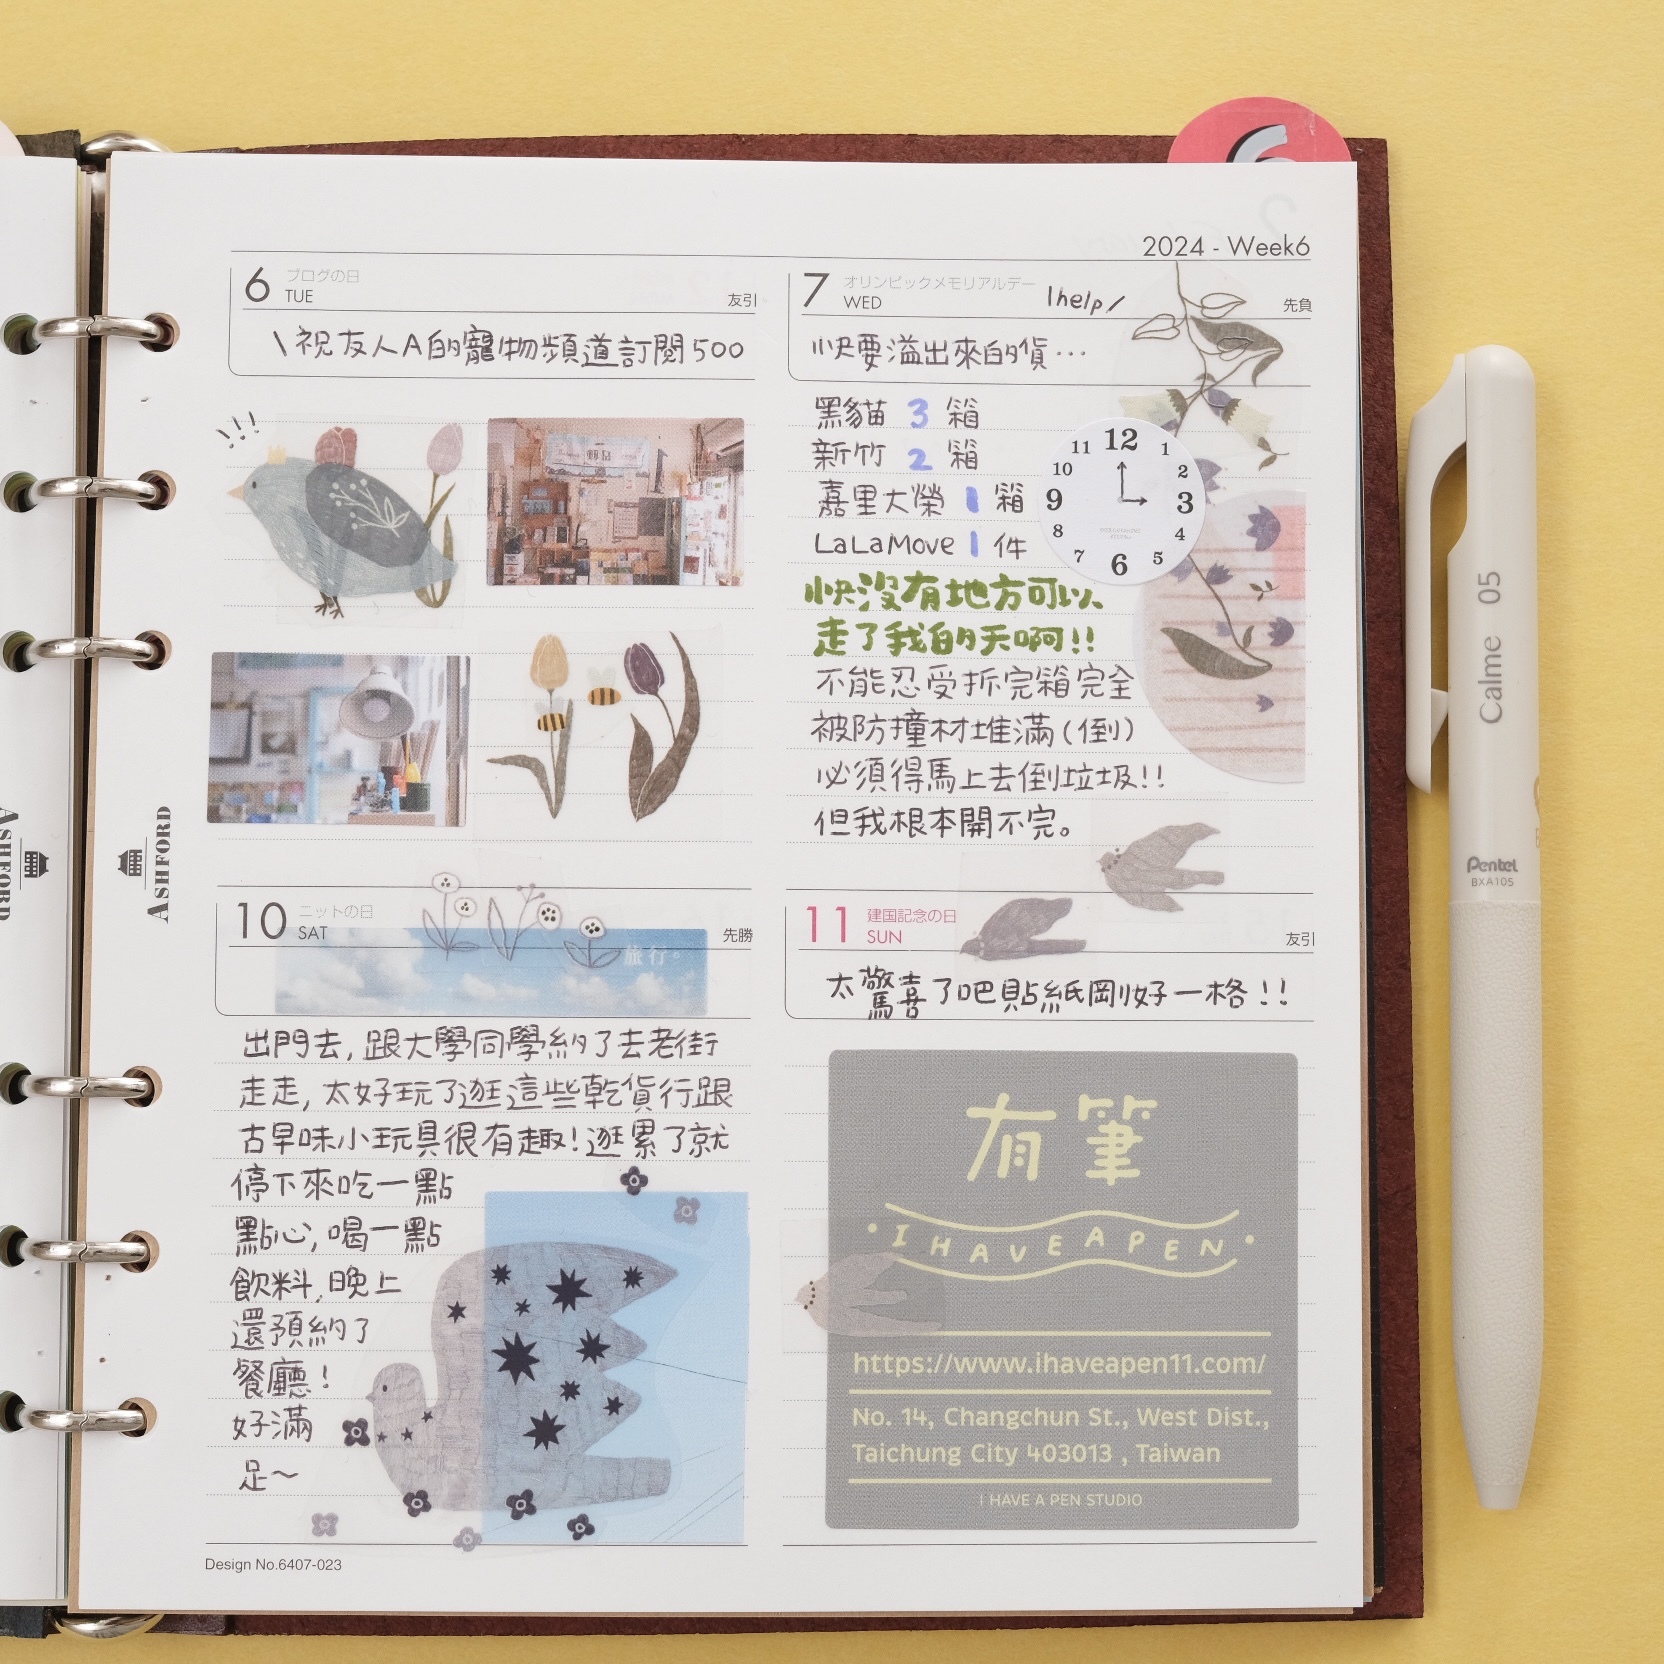 6
2024 - Week6
6 ブログの日
TUE
友引
\祝友人A的寵物頻道訂閱500
7 オリンピックメモリアルデー
WED
\help/
先負
快要溢出來的貨…
黑貓 3 箱
新竹 2 箱
嘉里大榮 1 箱
LaLaMove 1 件
快沒有地方可以
走了我的天啊!!
不能忍受拆完箱完全
被防撞材堆滿(倒)
必須得馬上去倒垃圾!!
但我根本開不完。
12
1
2
3
4
5
6
7
8
9
10
11
10 ニットの日
SAT
先勝
旅行。
出門去, 跟大學同學約了去老街
走走, 太好玩了逛這些乾貨行跟
古早味小玩具很有趣!逛累了就
停下來吃一點
點心, 喝一點
飲料, 晚上
還預約了
餐廳!
好滿
足~
11 建国記念の日
SUN
友引
太驚喜了吧貼紙剛好一格!!
有筆
• I HAVE A PEN •
https://www.ihaveapen11.com/
No. 14, Changchun St., West Dist.,
Taichung City 403013 , Taiwan
I HAVE A PEN STUDIO
Design No.6407-023
ASHFORD
ASHFORD
Calme 05
Pentel
BXA105